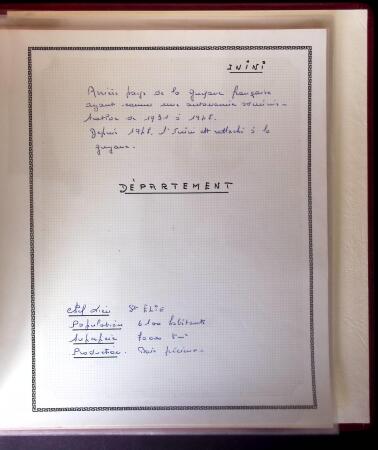 ININI
Arrière pays de la guyane française
ayant connu une autonomie adminis-
trative de 1931 à 1946.
Depuis 1946, l'Inini est rattaché à la
guyane.
DÉPARTEMENT
Chef lieu St ÉLIE
Population 6100 habitants
Superficie km²
Production. Bois